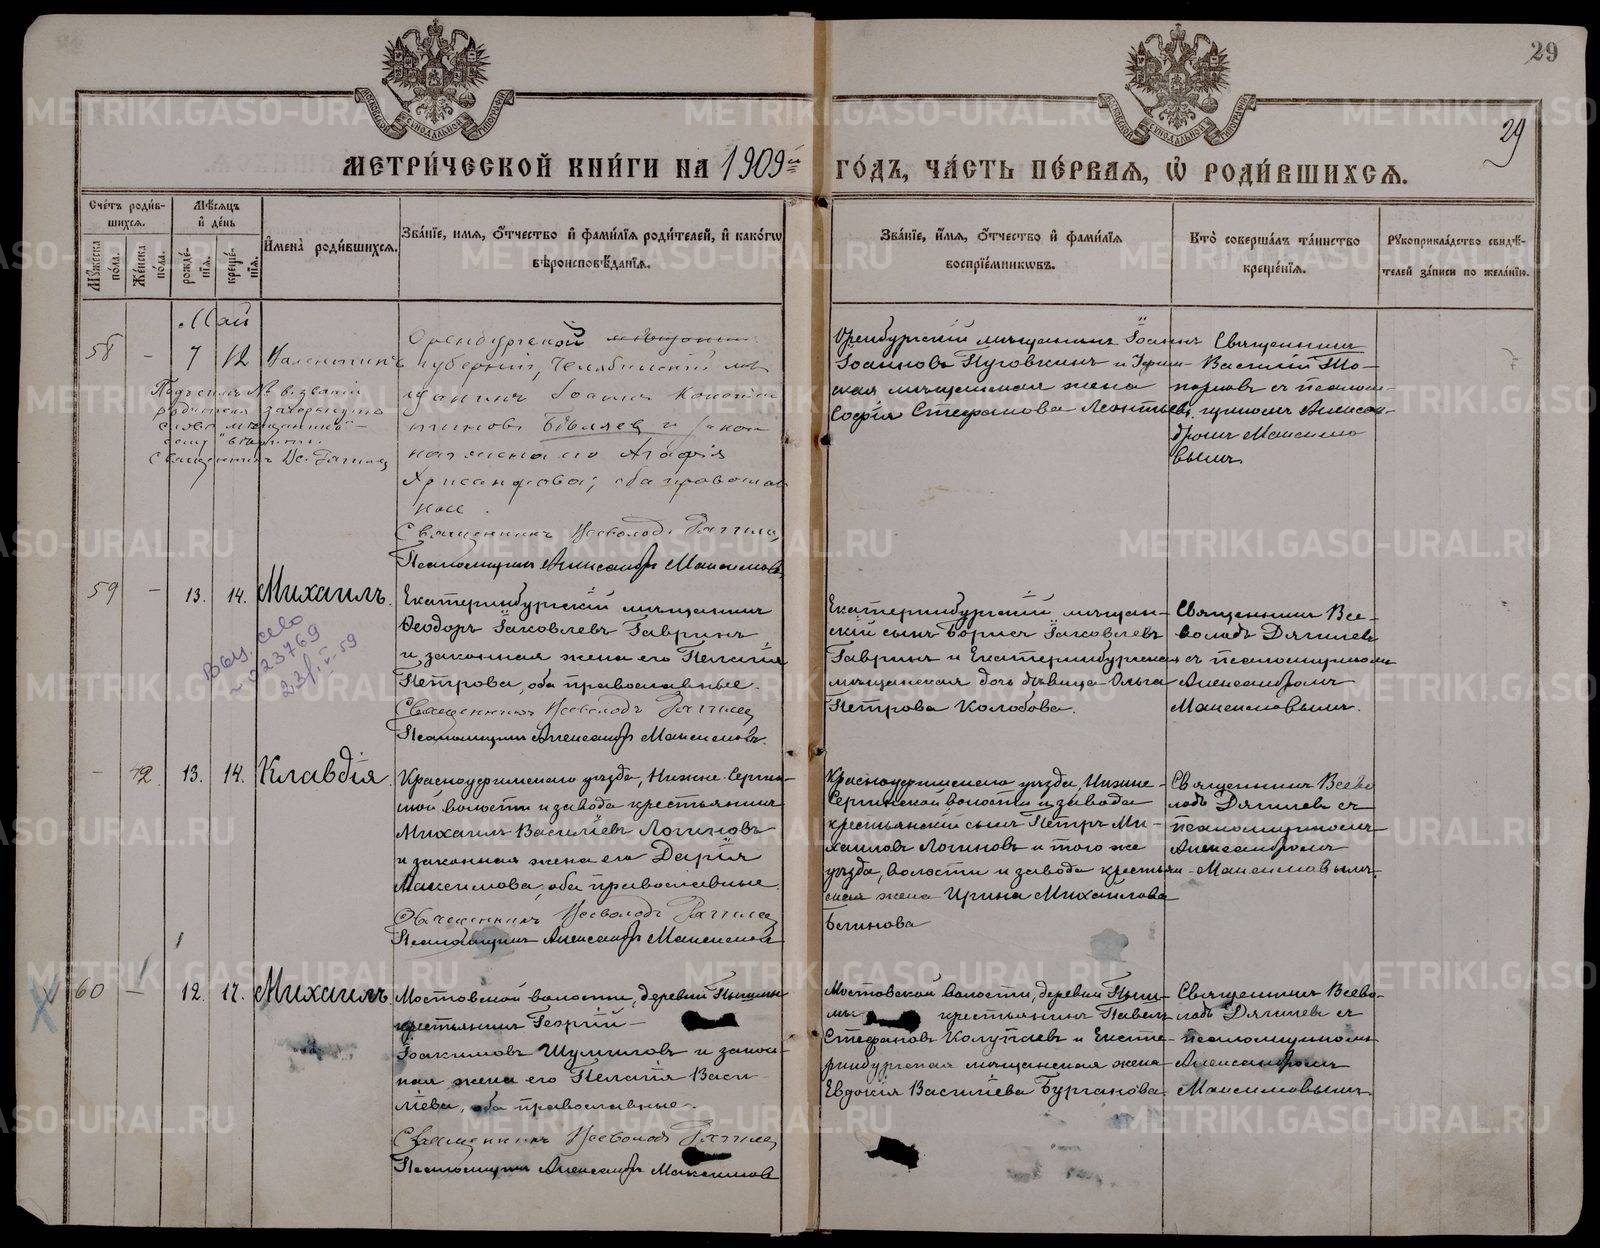 29
29
МЕТРИ́ЧЕСКОЙ КНИ́ГИ НА 1909й
ГО́ДЪ, ЧА́СТЬ ПЕ́РВАЯ, Ѡ РОДИ́ВШИХСЯ.
Сче́тъ роди́в-
шихся.
Му́жеска по́ла.
Же́нска по́ла.
Мѣ́сяцъ и де́нь
рожде́-
нїя.
креще́-
нїя.
И́мена роди́вшихся.
Зва́нїе, имя, о́тчество и фами́лїя роди́телей, и како́гѡ
вѣроисповѣ́данїя.
Зва́нїе, и́мя, о́тчество и фами́лїя
воспрїе́мникѡвъ.
Кто̀ соверша́лъ та́инство
креще́нїя.
Рꙋкоприкла́дство свидѣ́-
телей за́писи по жела́нїю.
Май
58 - 7 12 Валентинъ
Оренбургской
губернiи, Челябинскiй мѣ-
щанинъ Iоаннъ Констан-
тиновъ Бѣляев и закон
ная жена его Агафiя
Хрисанфова; оба православ
ные.
Священникъ Всеволодъ
Псаломщикъ Александръ Максимовъ
священникъ Вс.
Оренбургскiй мѣщанинъ Iоаннъ
Iоанновъ Пуговкинъ и
ская мѣщанская жена
Софiя Стефанова Леонтьева.
Священникъ
Василiй То-
порковъ съ псалом-
щикомъ Алексан-
дромъ Максимо
вымъ
59 - 13. 14. Михаилъ.
023769
59
Екатеринбургскiй мѣщанинъ
Ѳеодоръ Iаковлевъ Гавринъ
и законная жена его Пелагiя
Петрова, оба православные.
Священникъ Всеволодъ
Псаломщикъ Александръ Максимовъ.
Екатеринбургскiй мѣщан-
скiй сынъ Борисъ Iаковлевъ
Гавринъ и Екатеринбургская
мѣщанская дочь дѣвица Ольга
Петрова Колобова.
Священникъ Все-
володъ Дягилевъ
съ псаломщикомъ
Александромъ
Максимовымъ.
- 42 13. 14. Клавдiя.
Красноуфимскаго уѣзда, Нижне-Сергин-
ской волости и завода крестьянинъ
Михаилъ Василiевъ Логиновъ
и законная жена его Дарiя
Максимова, оба православные.
Священникъ Всеволодъ
Псаломщикъ Александръ Максимовъ
Красноуфимскаго уѣзда, Нижне-
Сергинской волости и завода
крестьянскiй сынъ Петръ Ми-
хаиловъ Логиновъ и того же
уѣзда, волости и завода крестьян-
ская жена Ирина Михаилова
Логинова
Священникъ Всево
лодъ Дягилевъ съ
псаломщикомъ
Александромъ
Максимовымъ.
60 - 12. 17. Михаилъ.
Мостовской волости, деревни Пышмы
крестьянинъ Георгiй
Iоакимовъ Шумиловъ и закон-
ная жена его Пелагiя Васи
лiева, оба православные.
Священникъ Всеволодъ
Псаломщикъ Александръ Максимовъ
Мостовской волости, деревни Пыш-
мы крестьянинъ Павелъ
Стефановъ Колупаевъ и Екате-
ринбургская мѣщанская жена
Евдокiя Василiева Бурганова.
Священникъ Всево-
лодъ Дягилевъ съ
псаломщикомъ
Александромъ
Максимовымъ.
METRIKI.GASO-URAL.RU